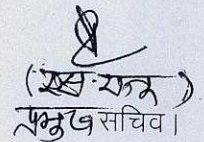 ( एस राजू )
प्रमुख सचिव।